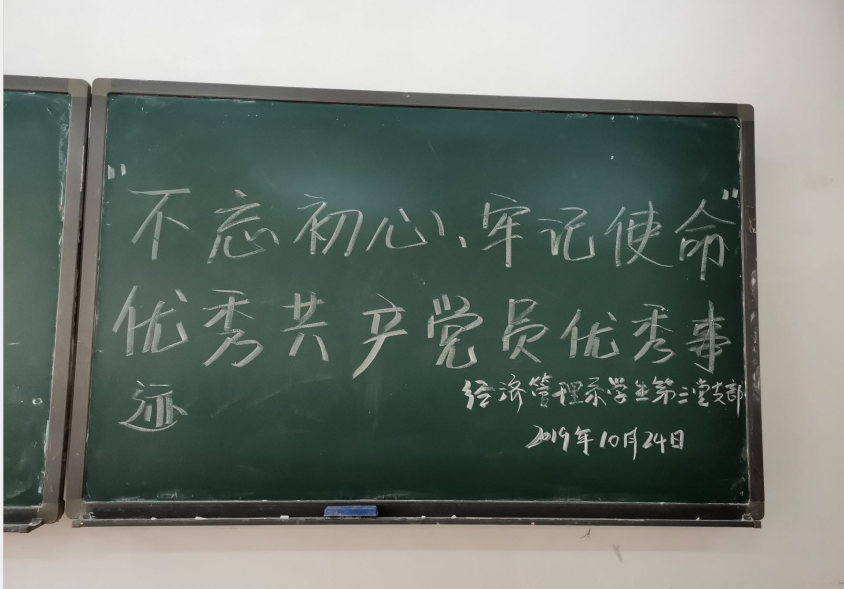 "不忘初心、牢记使命"
优秀共产党员优秀事
迹
经济管理系学生第三党支部
2019年10月24日